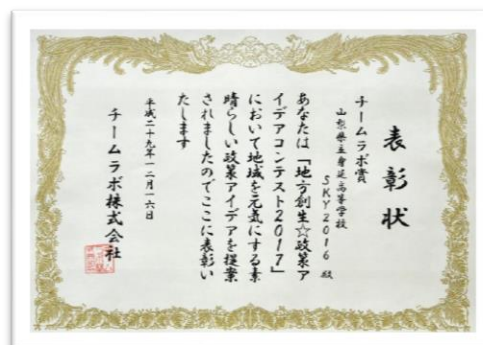 表彰状
チームラボ賞
山梨県立身延高等学校
SKY2016 殿
あなたは「地方創生☆政策ア
イデアコンテスト2017」
において地域を元気にする素
晴らしい政策アイデアを提案
されましたのでここに表彰い
たします
平成二十九年十二月十六日
チームラボ株式会社